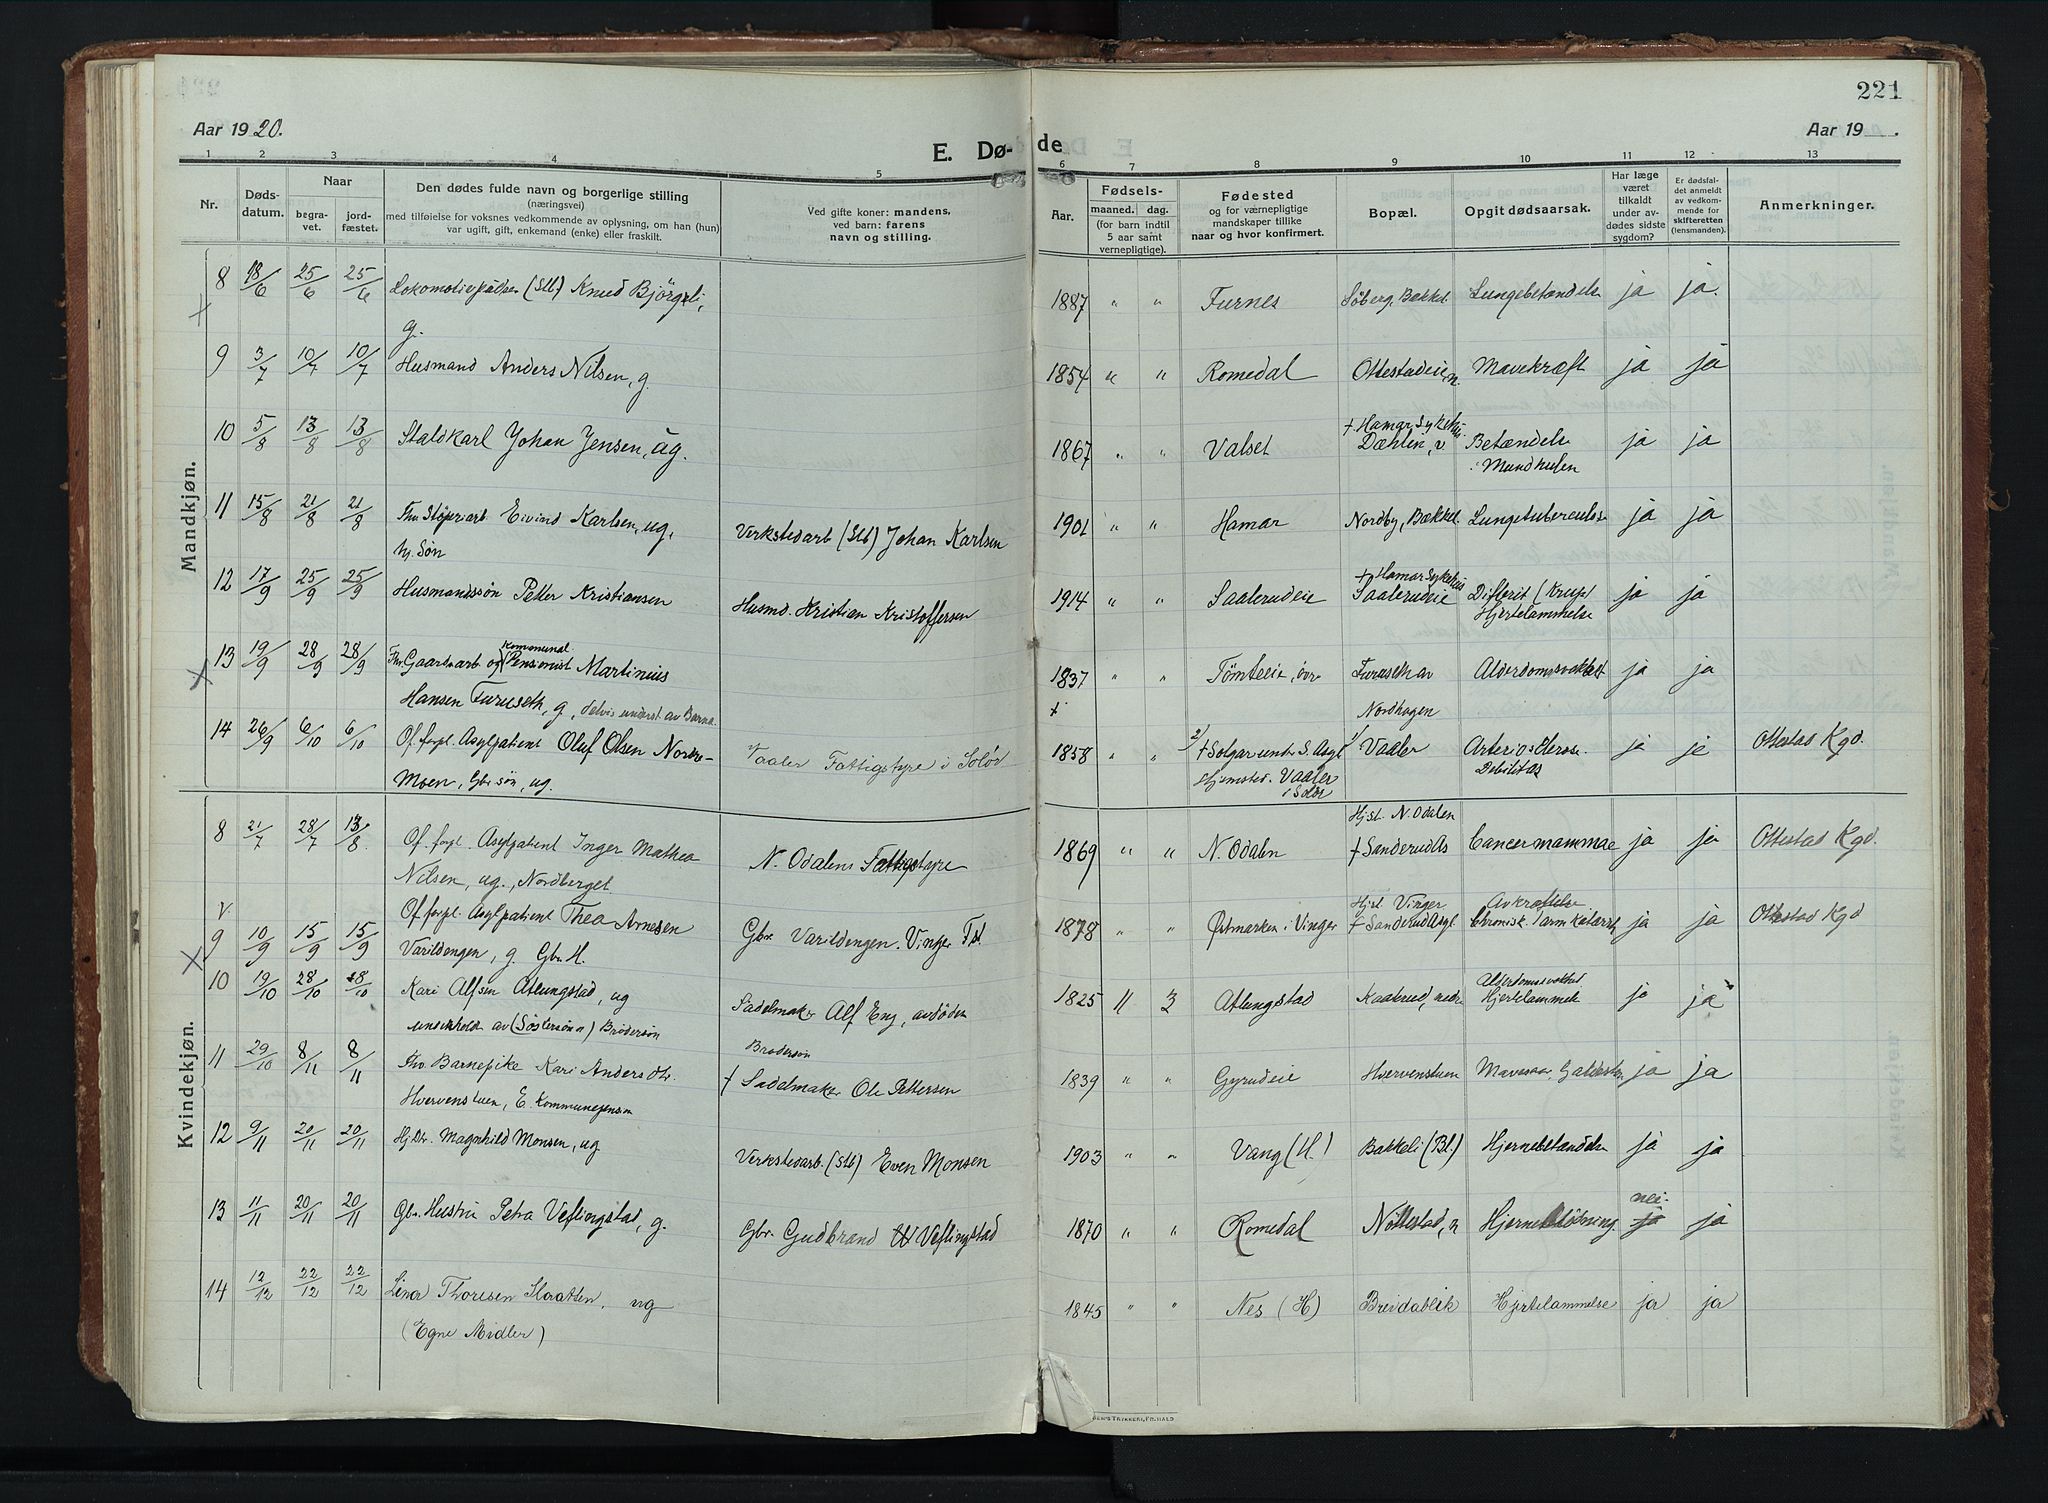 221
Aar 1920.
Aar 19    .
E. Dø-
de
1 2 3 4 5 6 7 8 9 10 11 12 13
Nr.
Døds-
datum.
Naar
begra-
vet.
jord-
fæstet.
Den dødes fulde navn og borgerlige stilling
(næringsvei)
med tilføielse for voksnes vedkommende av oplysning, om han (hun)
var ugift, gift, enkemand (enke) eller fraskilt.
Ved gifte koner: mandens,
ved barn: farens
navn og stilling.
Aar.
Fødsels-
maaned. dag.
(for barn indtil
5 aar samt
vernepligtige).
Fødested
og for værnepligtige
mandskaper tillike
naar og hvor konfirmert.
Bopæl.
Opgit dødsaarsak.
Har læge
været
tilkaldt
under av-
dødes sidste
sygdom?
Er dødsfal-
det anmeldt
av vedkom-
mende for
skifteretten
(lensmanden).
Anmerkninger.
Mandkjøn.
8 18/6 25/6 25/6 Lokomotivpudser (Stb) Knud Bjørgeli, 1887 " " Furnes Søberg, Bækkel. Lungebetændelse ja ja.
g.
9 3/7 10/7 10/7 Husmand Anders Nilsen, g. 1854 " " Romedal Ottestadeie, n. Mavekræft ja ja
10 5/8 13/8 13/8 Staldkarl Johan Jensen, ug. 1867 " " Valset + Hamar Sykehus
Dæhlen, v. Betændelse ja ja
i Mundhulen
11 15/8 21/8 21/8 Fhv Støperiarb. Eivind Karlsen, ug, Verkstedarb (Stb) Johan Karlsen 1901 " " Hamar Nordby, Bækkel. Lungetuberculose ja ja
hj. Søn
12 17/9 25/9 25/9 Husmandssøn Petter Kristiansen Husmd. Kristian Kristoffersen 1914 " " Saalerudeie + Hamar Sykehus
Saalerudeie Difterit (Krup) ja ja
Hjertelammelse
13 19/9 28/9 28/9 Fhv. Gaardarb og Kommunal Pensionist Martinius 1837 " " Tømteeie, øvre Furuseth av Alderdomssvakhet ja ja
Hansen Furuseth, g, delvis underst. av Barna. Nordhagen
14 26/9 6/10 6/10 Of. forpl. Asylpatient Oluf Olsen Nordre- Vaaler Fattigstyre i Solør 1858 " " 2/ + Solgar under S. Asyl 1/ Vaaler Arteriosklerose. ja ja Ottestad Kgd.
Moen, Gbr. søn, ug. Hjemsted. Vaaler Debilitas
i Solør
Kvindekjøn.
8 21/7 28/7 13/8. Of. forpl. Asylpatient Inger Mathea N. Odalens Fattigstyre 1869 " " N. Odalen Hjst. N. Odalen
+ Sanderud As Cancer mammae ja ja Ottestad Kgd.
Nilsen, ug., Nordberget
9 10/9 15/9 15/9 Of. forpl. Asylpatient Thea Arnesen Gbr. Varildengen. Vinger Fst. 1878 " " Østmarken i Vinger Hjst. Vinger
+ Sanderud Asyl Avkræftelse
Chronisk Tarmkatarrh ja ja Ottestad Kgd
Varildengen, g. Gbr. H.
10 19/10 28/10 28/10 Kari Alfsen Atlungstad, ug Sadelmaker Alf Eng, avdøde 1825 11 3 Atlungstad Kaatrud, nedre Alderdomssvakhet
Hjertelammelse ja ja
underholdt av (Søstersønn) Brodersøn
11 29/10 8/11 8/11 Fhv. Barnepike Kari Andersdtr. Brodersøn
+ Sadelmaker Ole Pettersen 1839 " " Gyrudeie Hvervenstuen Mavesaar, Galdesten ja ja
Hvervenstuen, E. Kommunepension
12 9/11 20/11 20/11 Hj. Dtr. Magnhild Monsen, ug. Verkstedarb. (Stb) Even Monsen 1903 " " Vang (H.) Bakkeli (Bl.) Hjernebetændelse ja ja
13 11/11 20/11 20/11 Gbr. Hustru Petra Veflingstad, g. Gbr. Gudbrand Veflingstad 1870 " " Romedal Nøttestad, n Hjerneblødning nei
ja ja
14 12/12 22/12 22/12 Lina Thoresen Slaatten, ug 1845 " " Nes (H) Breidablik Hjertelammelse ja ja
(Egne Midler)